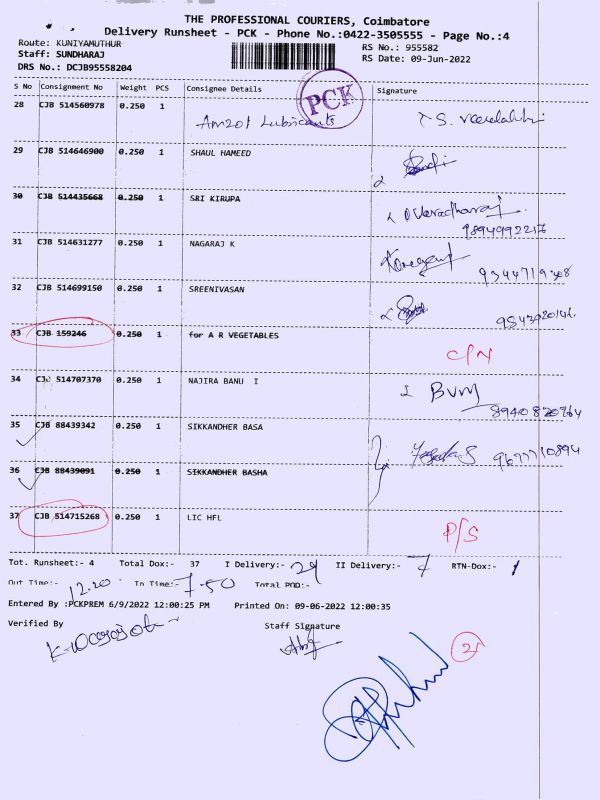 THE PROFESSIONAL COURIERS, Coimbatore
Delivery Runsheet - PCK - Phone No.:0422-3505555 - Page No.:4
Route: KUNIYAMUTHUR
Staff: SUNDHARAJ
DRS No.: DCJB95558204
RS No.: 955582
RS Date: 09-Jun-2022
S No Consignment No Weight PCS Consignee Details Signature
PCK
28 CJB 514560978 0.250 1 Amzol Lubricants
29 CJB 514646900 0.250 1 SHAUL HAMEED
30 CJB 514435668 0.250 1 SRI KIRUPA D Varadharaj
9894992217
31 CJB 514631277 0.250 1 NAGARAJ K
9344719308
32 CJB 514699150 0.250 1 SREENIVASAN
9543920146
33 CJB 159246 0.250 1 for A R VEGETABLES
C/N
34 CJB 514707370 0.250 1 NAJIRA BANU I BVM
8940820764
35 CJB 88439342 0.250 1 SIKKANDHER BASA
9677710894
36 CJB 88439091 0.250 1 SIKKANDHER BASHA
37 CJB 514715268 0.250 1 LIC HFL
P/S
Tot. Runsheet:- 4 Total Dox:- 37 I Delivery:- 29 II Delivery:- 7 RTN-Dox:- 1
Out Time:- 12.20 In Time:- 7.50 Total POD:-
Entered By :PCKPREM 6/9/2022 12:00:25 PM Printed On: 09-06-2022 12:00:35
Verified By Staff Signature